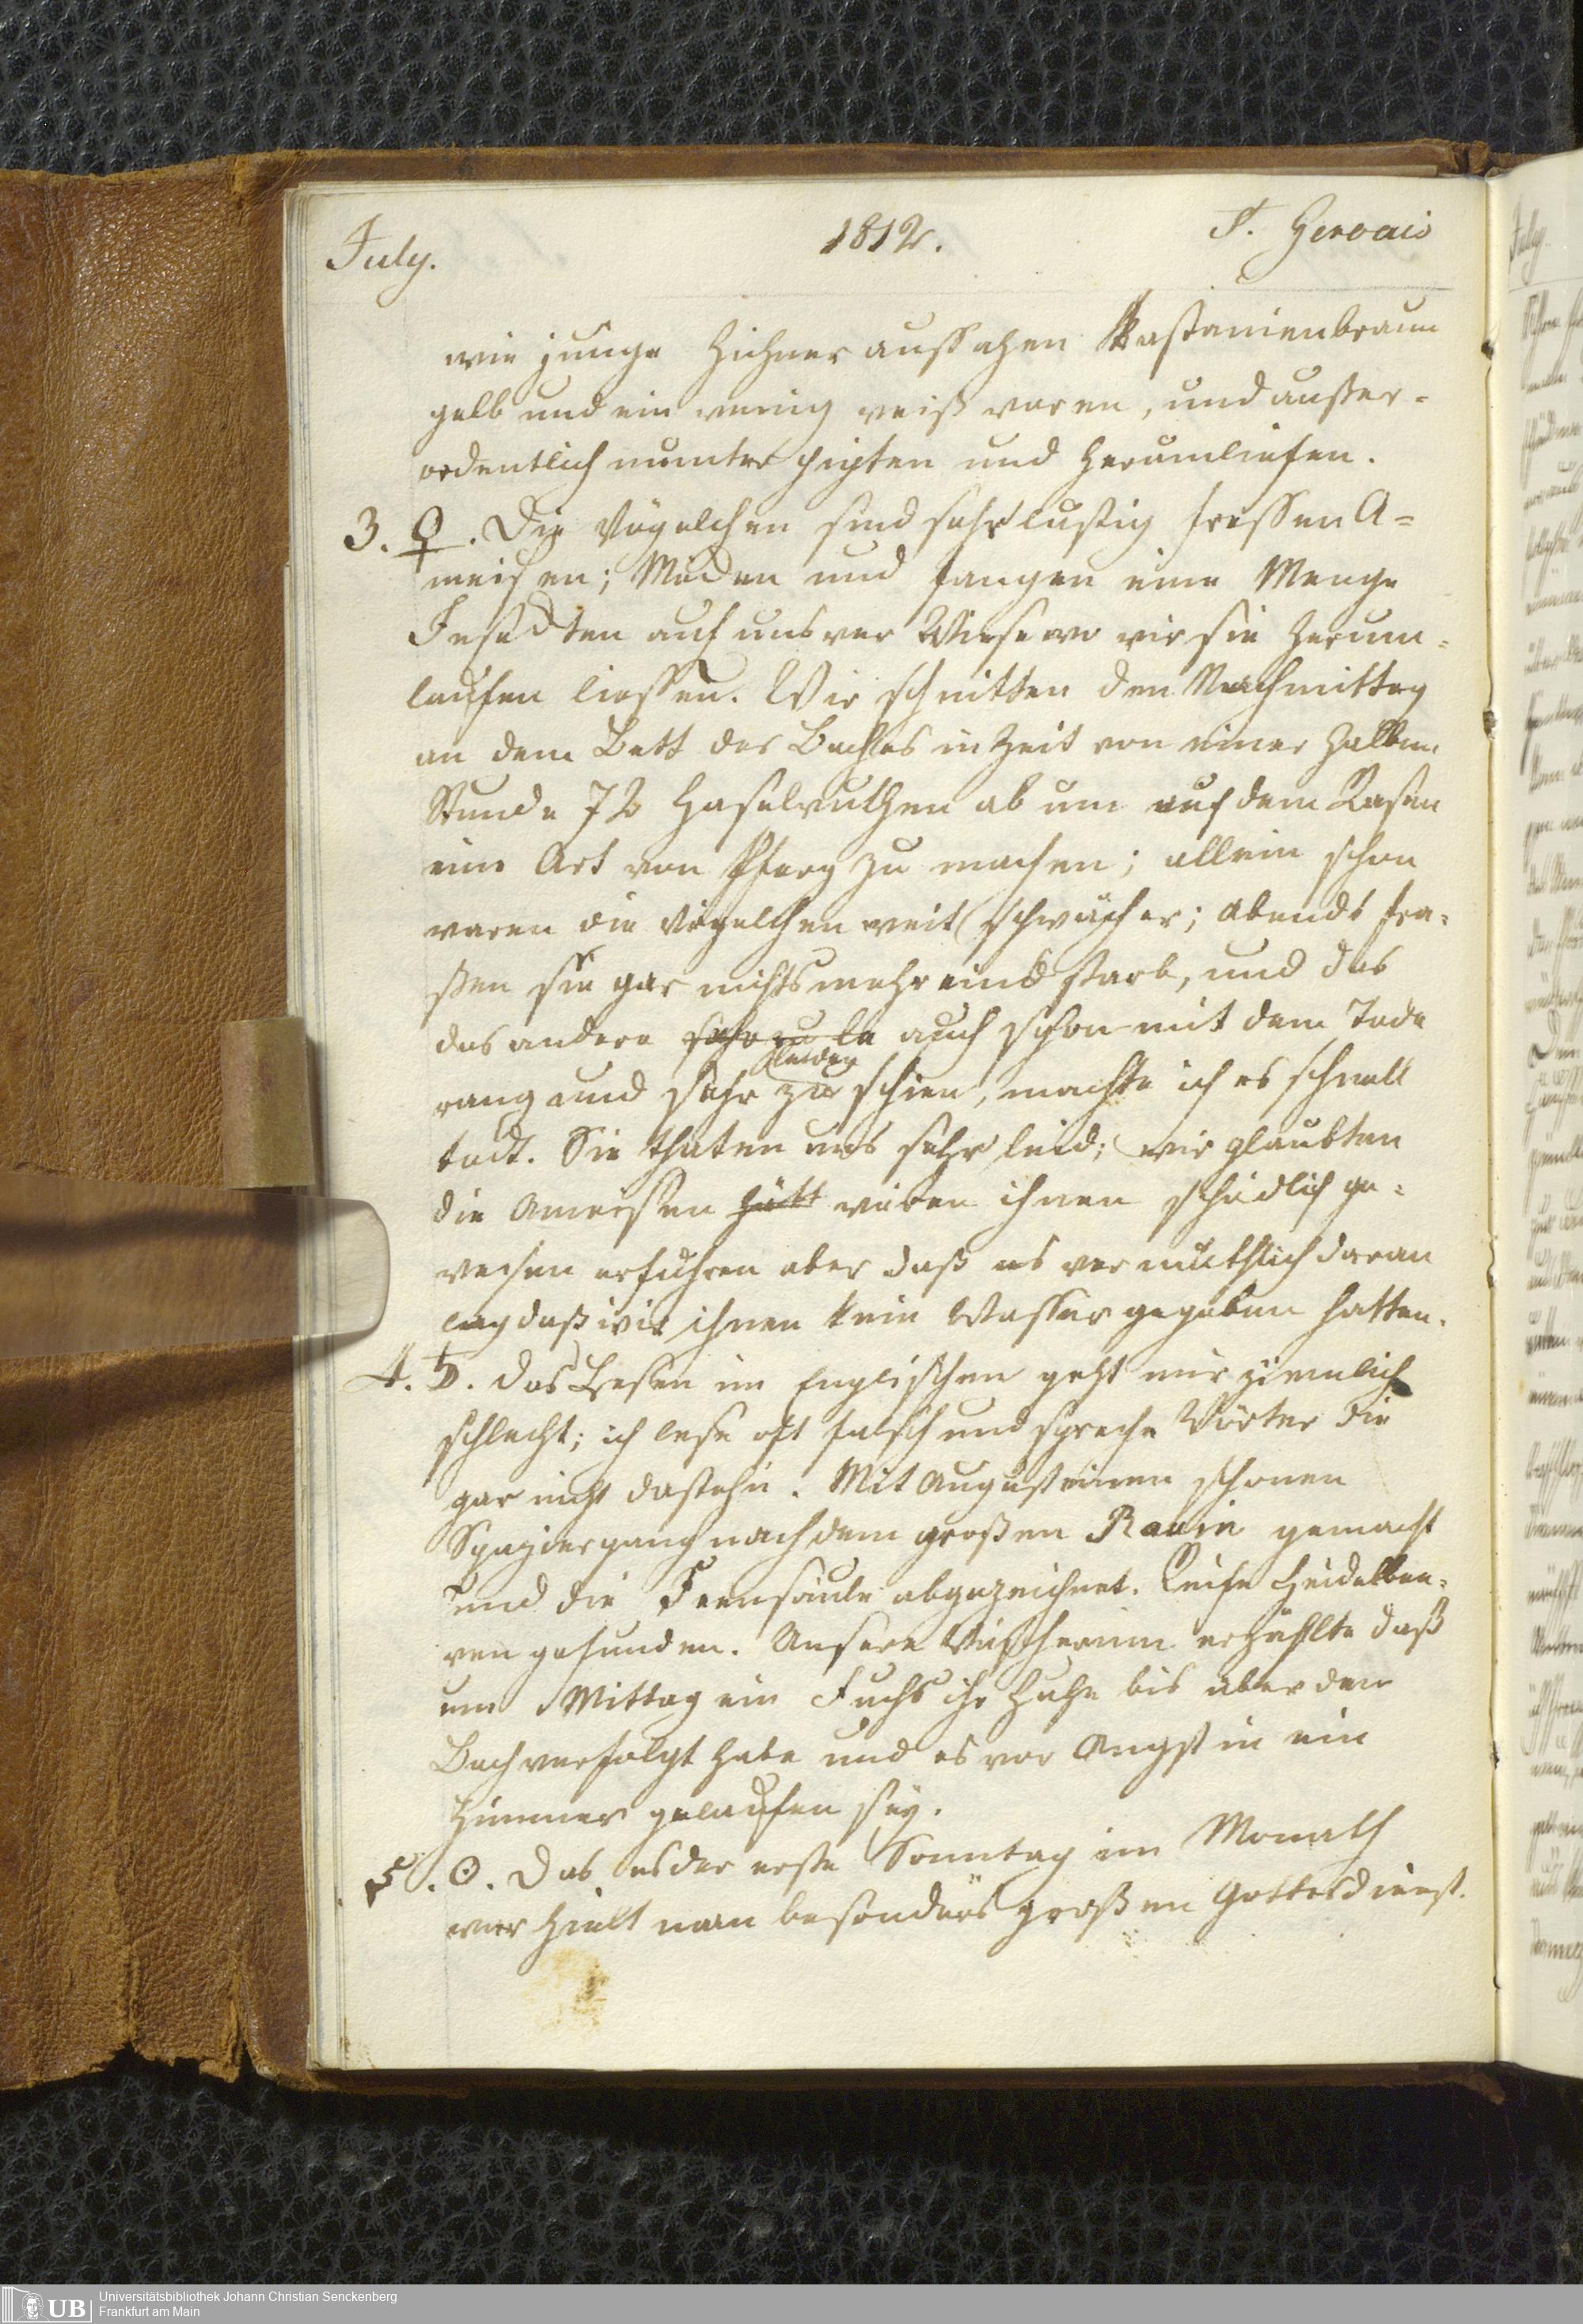 July.
1812.
St. Gervais
wie junge Hühner aussahen kastanienbraun
gelb und ein wenig weiß waren, und außer-
ordentlich munter pipten und herumliefen.
3. ♀. Die Vögelchen sind sehr lustig fressen A-
meisen; Maden und fangen eine Menge
Insecten auf unserer Wiese wo wir sie herum-
laufen liessen. Wir schnitten den Nachmittag
an dem Bett des Baches in Zeit von einer halben
Stunde 72 Haselruthen ab um auf dem Rasen
eine Art von Pferg zu machen; allein schon
waren die Vögelchen weit schwächer; Abends fra-
ßen sie gar nichts mehr eins starb, und das
das andere sehr zu le auch schon mit dem Tode
rang und sehr zu leiden schien, machte ich es schnell
todt. Sie thaten uns sehr leid; wir glaubten
die Ameisen hätt wären ihnen schädlich ge-
wesen erfuhren aber daß es vermuthlich daran
lag daß wir ihnen kein Wasser gegeben hatten.
4. ♄. Das Lesen im Englischen geht mir ziemlich
schlecht; ich lese oft falsch und spreche Wörter die
gar nicht dastehn. Mit August einen schönen
Spaziergang nach dem großen Ravin gemacht
und die Feensäule abgezeichnet. Reife Heidelbee-
ren gefunden. Unsere Wirtherinn erzählte daß
um Mittag ein Fuchs ihr Huhn bis über den
Bach verfolgt habe und es vor Angst in ein
Zimmer gelaufen sey.
5. ☉. Das es der erste Sonntag im Monath
war hielt man besonders großen Gottesdienst.
UB
Universitätsbibliothek Johann Christian Senckenberg
Frankfurt am Main